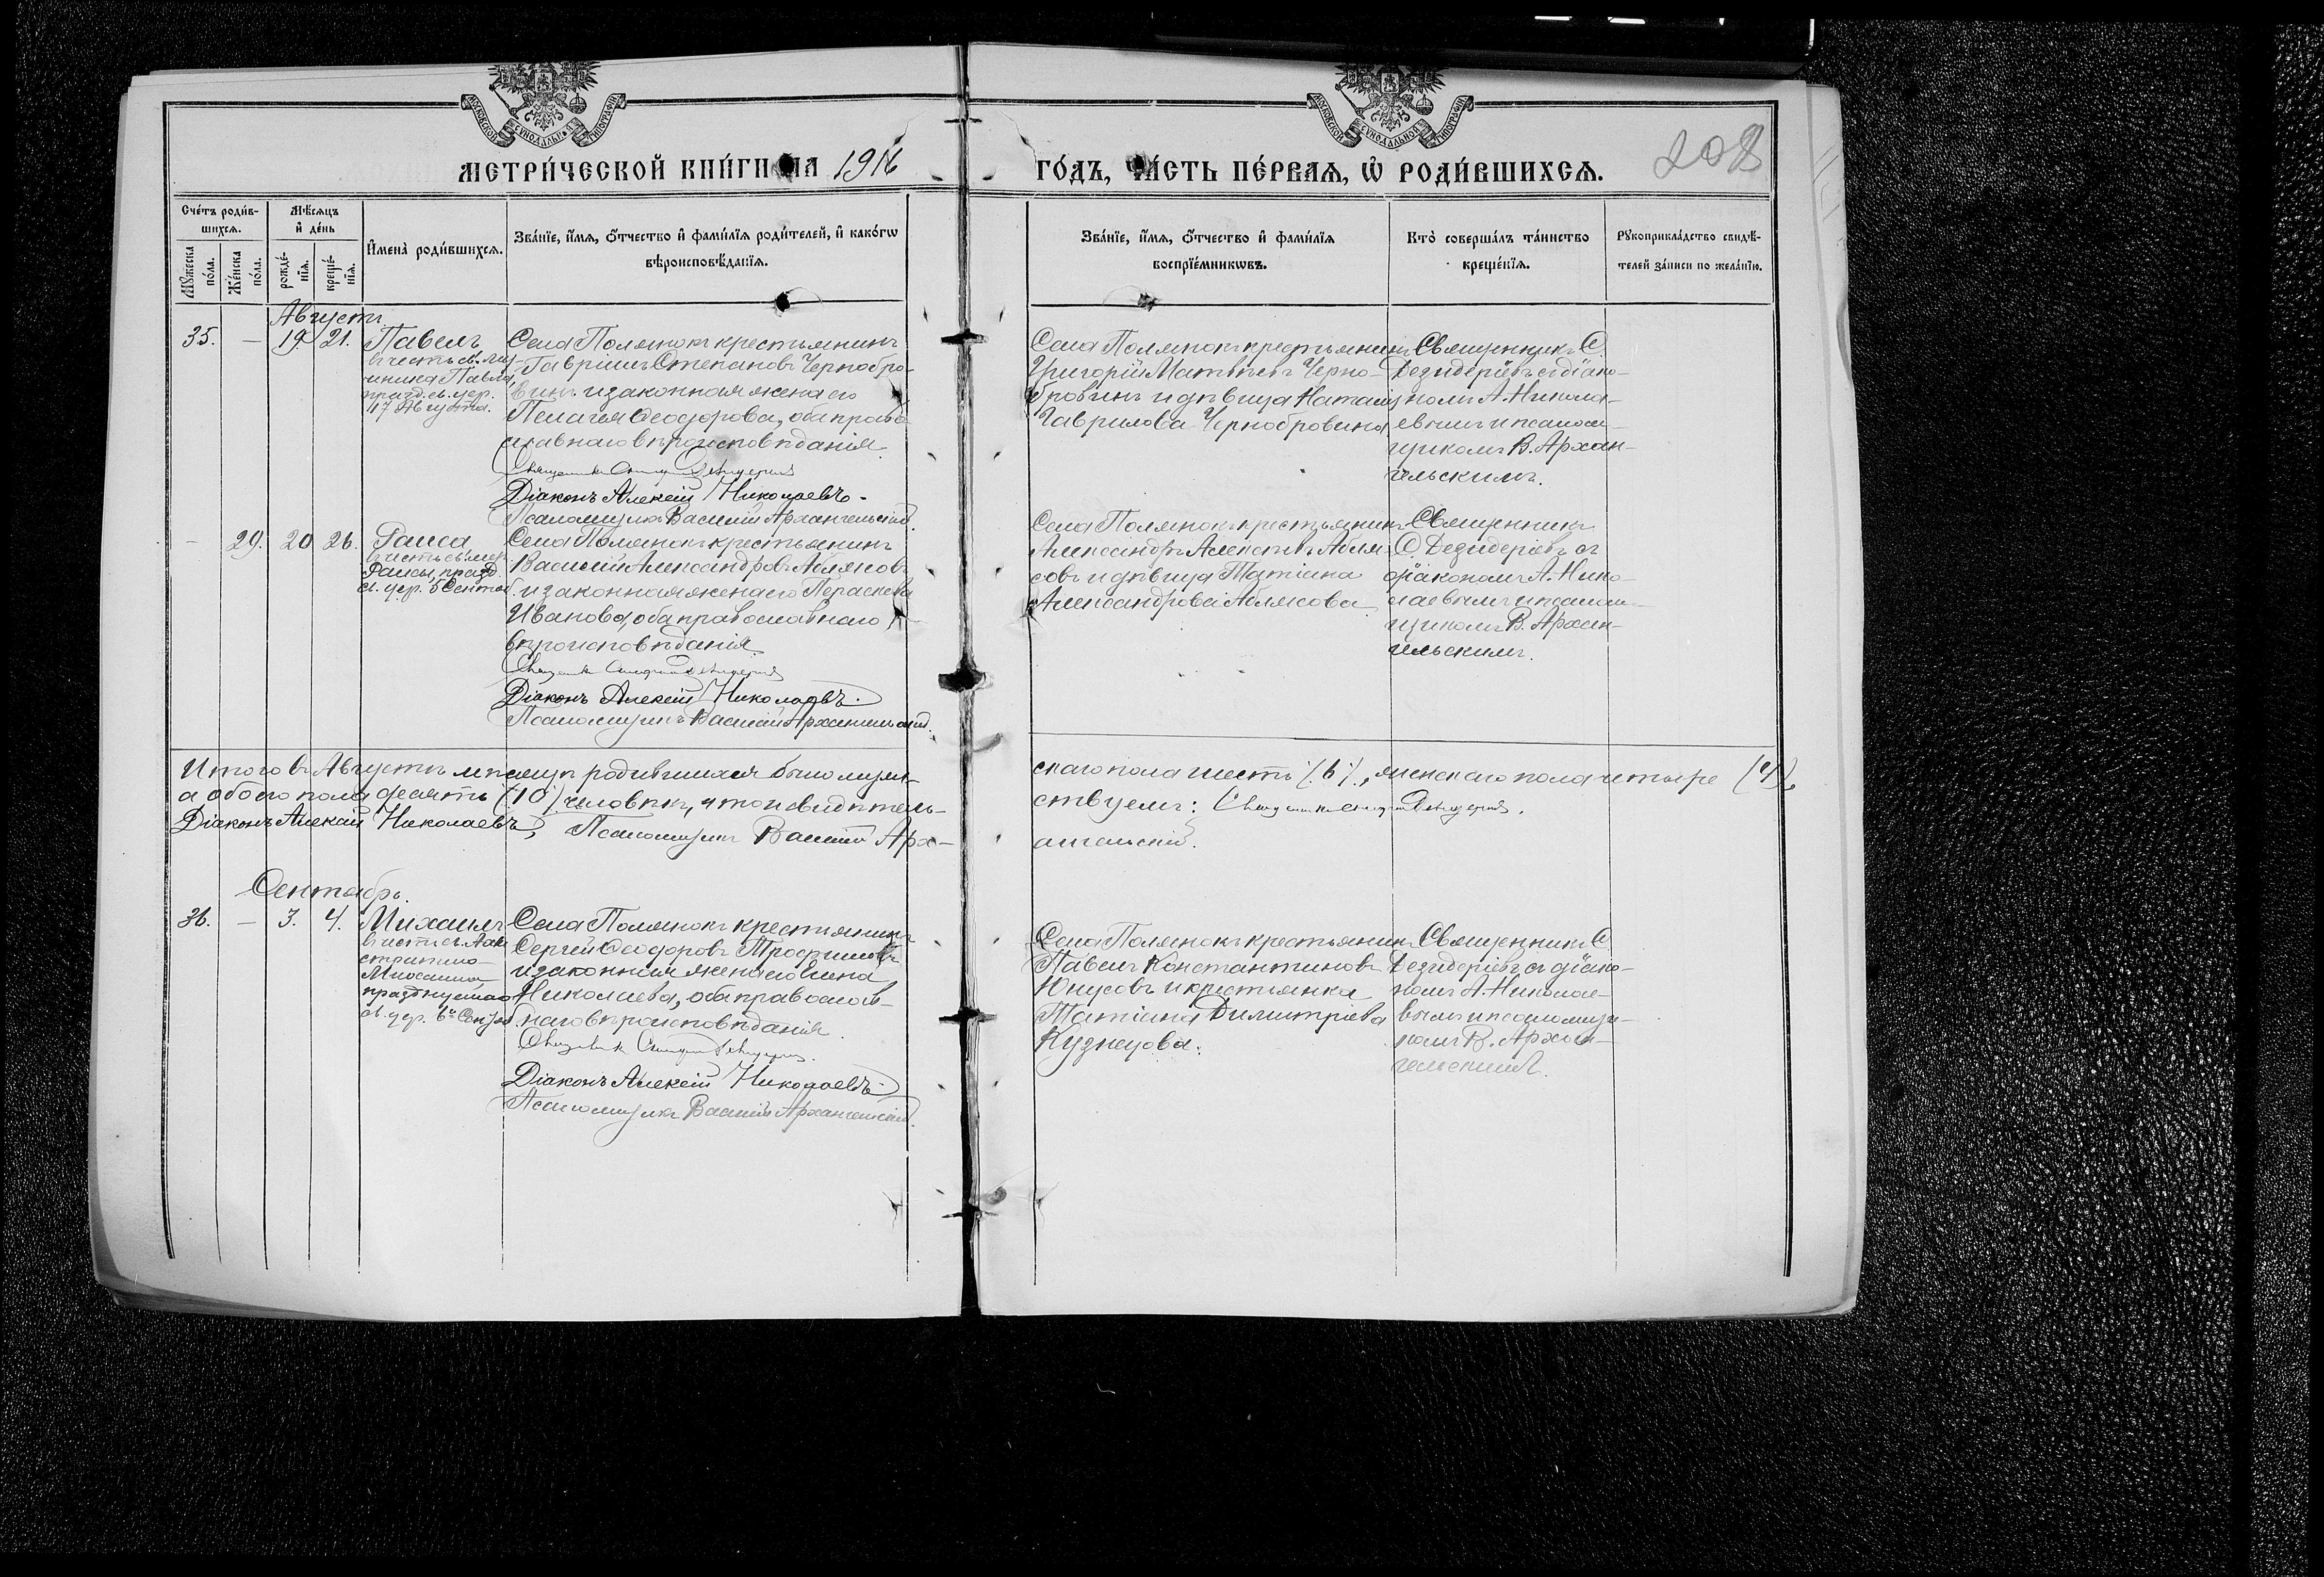 МОСКОВСКОЙ СѴНОДАЛЬНОЙ ТИПОГРАФІИ
МОСКОВСКОЙ СѴНОДАЛЬНОЙ ТИПОГРАФІИ
МЕТРИ́ЧЕСКОЙ КНИ́ГИ НА 1916
ГО́ДЪ, ЧА́СТЬ ПЕ́РВАѦ, Ѡ҆ РОДИ́ВШИХСѦ.
208
Сче́тъ роди́в-
шихсѧ.
Мꙋ́жеска
по́ла.
Же́нска
по́ла.
Мѣ́сѧцъ
и҆ де́нь
рожде́-
нїѧ.
креще́-
нїѧ.
И҆мена̀ роди́вшихсѧ.
Зва́нїе, и҆́мѧ, ѻ҆́тчество и҆ фами́лїѧ роди́телей, и҆ како́гѡ
вѣроисповѣ́данїѧ.
Зва́нїе, и҆́мѧ, ѻ҆́тчество и҆ фами́лїѧ
воспрїе́мникѡвъ.
Кто̀ соверша́лъ та́инство
креще́нїѧ.
Рꙋкоприкла́дство свидѣ́-
телей за́писи по жела́нїю.
Августъ
35. — 19. 21. Павелъ
въ честь св. му-
ченика Павла,
празд. св. цер.
17 Августа.
Села Полянокъ крестьянинъ
Гавріилъ Степановъ Чернобро-
винъ и законная жена его
Пелагея Ѳеодорова, оба право-
славнаго вѣроисповѣданія.
Священникъ
Діаконъ Алексій Николаевъ.
Псаломщикъ Василій Архангельскій.
Села Полянокъ крестьянинъ
Григорій Матвѣевъ Черно-
бровинъ и дѣвица Наталія
Гаврилова Чернобровина
Священникъ С.
Дезидеріевъ съ діако-
номъ А. Никола-
евымъ и псалом-
щикомъ В. Архан-
гельскимъ.
- 29. 20 26. Раиса
въ честь св. муч.
Раисы, празд.
св. цер. 5 Сентяб.
Села Полянокъ крестьянинъ
Василій Александровъ Аблясовъ
и законная жена его Параскева
Иванова, оба православнаго
вѣроисповѣданія.
Священникъ
Діаконъ Алексій Николаевъ.
Псаломщикъ Василій Архангельскій.
Села Полянокъ крестьянинъ
Александръ Алексѣевъ Абля-
совъ и дѣвица Татіана
Александрова Аблясова
Священникъ
С. Дезидеріевъ съ
діакономъ А. Нико-
лаевымъ и псалом-
щикомъ В. Архан-
гельскимъ.
Итого въ Августѣ мѣсяцѣ родившихся было муже-
скаго пола шесть (6), женскаго пола четыре (4),
а обоего пола десять (10) человѣкъ, что и свидѣтель-
ствуемъ: Священникъ
Діаконъ Алексій Николаевъ, Псаломщикъ Василій Арх-
ангельскій.
Сентябрь.
36. — 3. 4. Михаилъ
въ честь св. Архи-
стратига
Михаила,
празднуемаго
св. цер. 6го Сентяб.
Села Полянокъ крестьянинъ
Сергѣй Ѳеодоровъ Трофимовъ
и законная жена его Елена
Николаева, оба православ-
наго вѣроисповѣданія.
Священникъ
Діаконъ Алексій Николаевъ
Псаломщикъ Василій Архангельскій.
Села Полянокъ крестьянинъ
Павелъ Константиновъ
Юнусовъ и крестьянка
Татіана Димитріева
Кузнецова.
Священникъ С.
Дезидеріевъ съ діако-
номъ А. Николае-
вымъ и псаломщи-
комъ В. Архан-
гельскимъ.